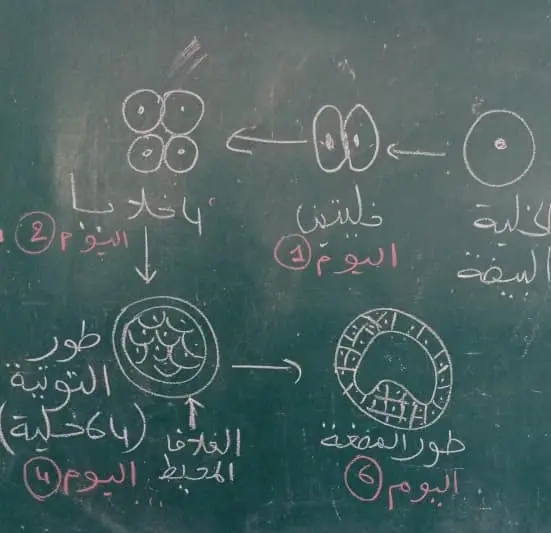 الخلية
البيضة
خليتين
اليوم 1
4 خلايا
اليوم 2
طور
التوتية
(64 خلية)
اليوم 4
الغلاف
المحيط
طور المضغة
اليوم 6